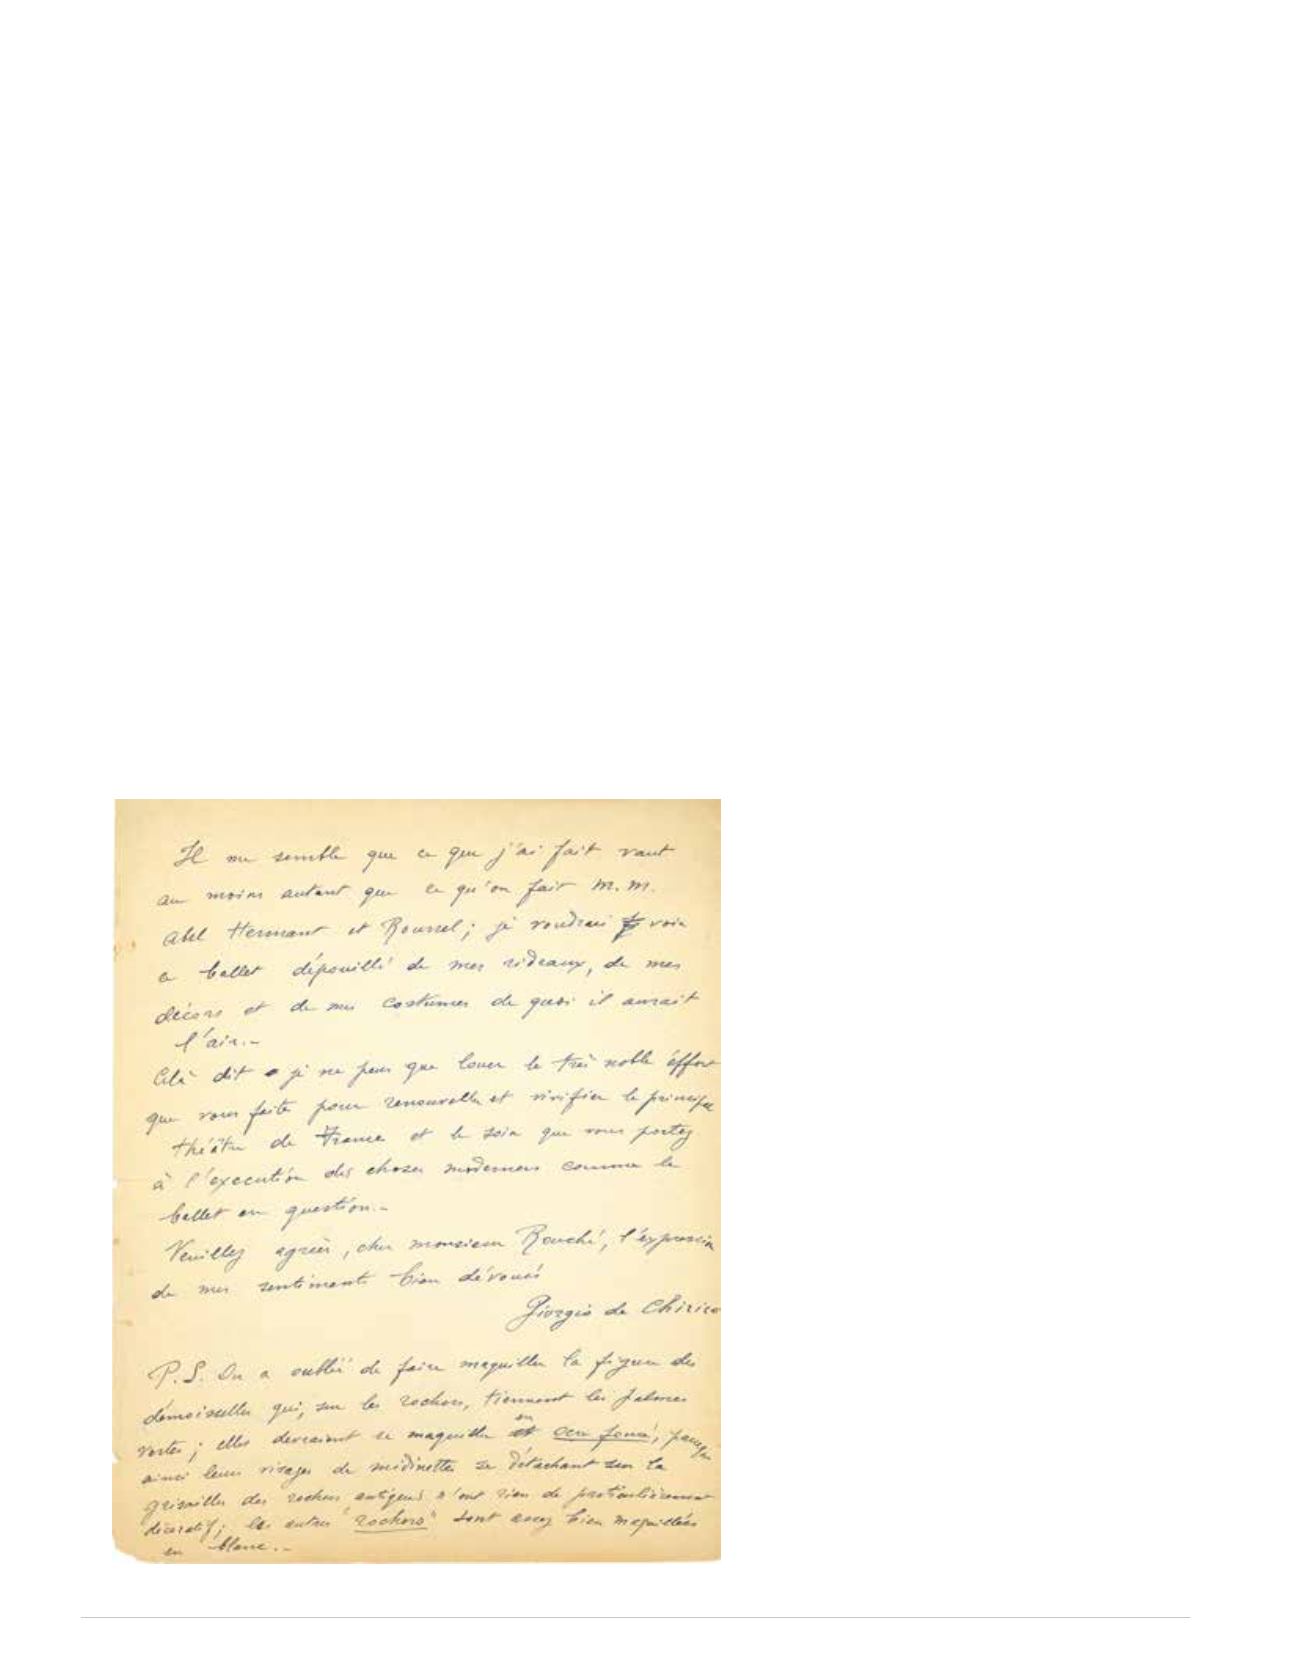 Il me semble que ce que j'ai fait vaut
au moins autant que ce qu'on fait M.M.
Abel Hermant et Roussel; je voudrai voir
ce ballet dépouillé de mes rideaux, de mes
décors et de mes costumes de quoi il aurait
l'air.-
Celà dit je ne peux que louer le très noble éffort
que vous faite pour renouveller et vivifier le principal
théâtre de France et le soin que vous portez
à l'execution des choses modernes comme le
ballet en question.-
Veuillez agréer, cher monsieur Rouché, l'expression
de mes sentiments bien dévoués
Giorgio de Chirico
P.S. On a oublié de faire maquiller la figure des
démoiselles qui, sur les rochers, tiennent les palmes
vertes; elles devraient se maquiller en ocre foncé, parceque
ainsi leurs visages de midinettes se détachant sur la
grisaille des rochers antiques n'ont rien de particulièrement
décoratif; les autres "rochers" sont assez bien maquillées
en blanc.-